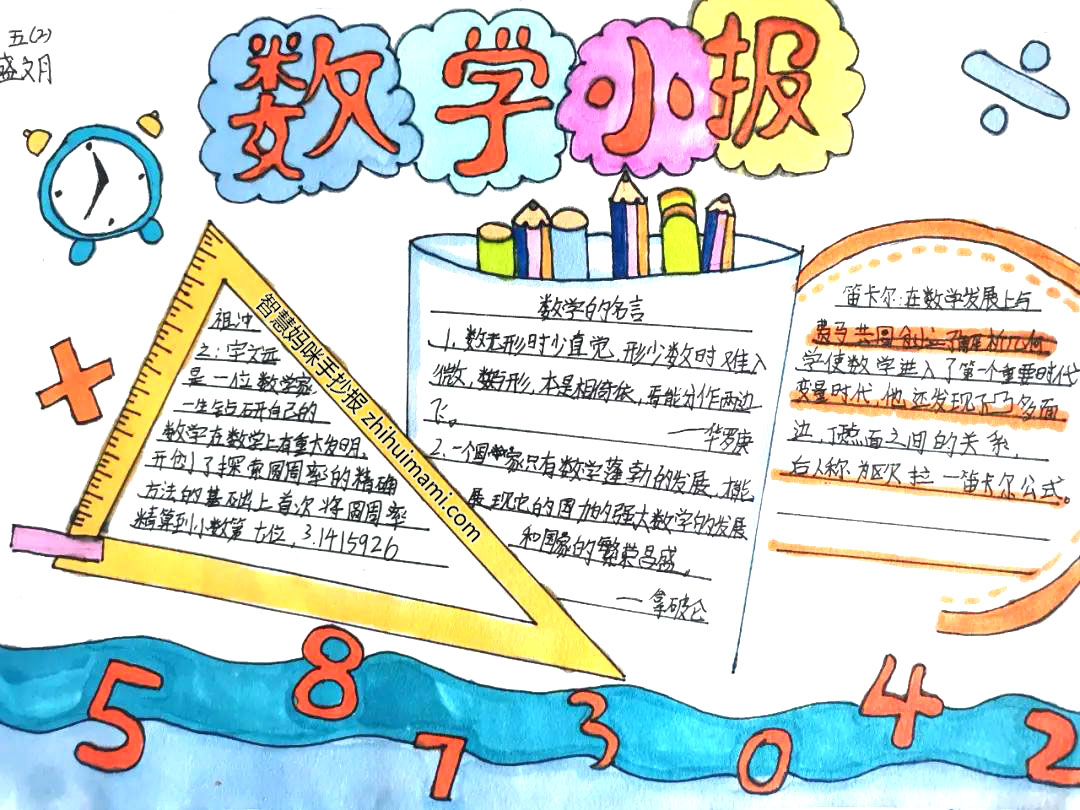 五(2)
盛文月
数学小报
智慧妈咪手抄报 zhihuimami.com
祖冲
之:字文远
是一位数学家
一生钻研自己的
数学在数学上有重大发明,
开创了探索圆周率的精确
方法的基础上首次将圆周率
精算到小数第七位,3.1415926
数学的名言
1、数无形时少直觉,形少数时难入
微,数与形,本是相倚依,焉能分作两边
飞。
一华罗庚
2.一个国家只有数学蓬勃的发展,才能
展现它的国力的强大数学的发展
和国家的繁荣昌盛。
一拿破仑
笛卡尔:在数学发展上与
费马共同创立了解析几何
学使数学进入了第一个重要时代
变量时代,他还发现了多面
边,顶点面之间的关系,
后人称为欧拉一笛卡尔公式。
5 8 7 3 0 4 2